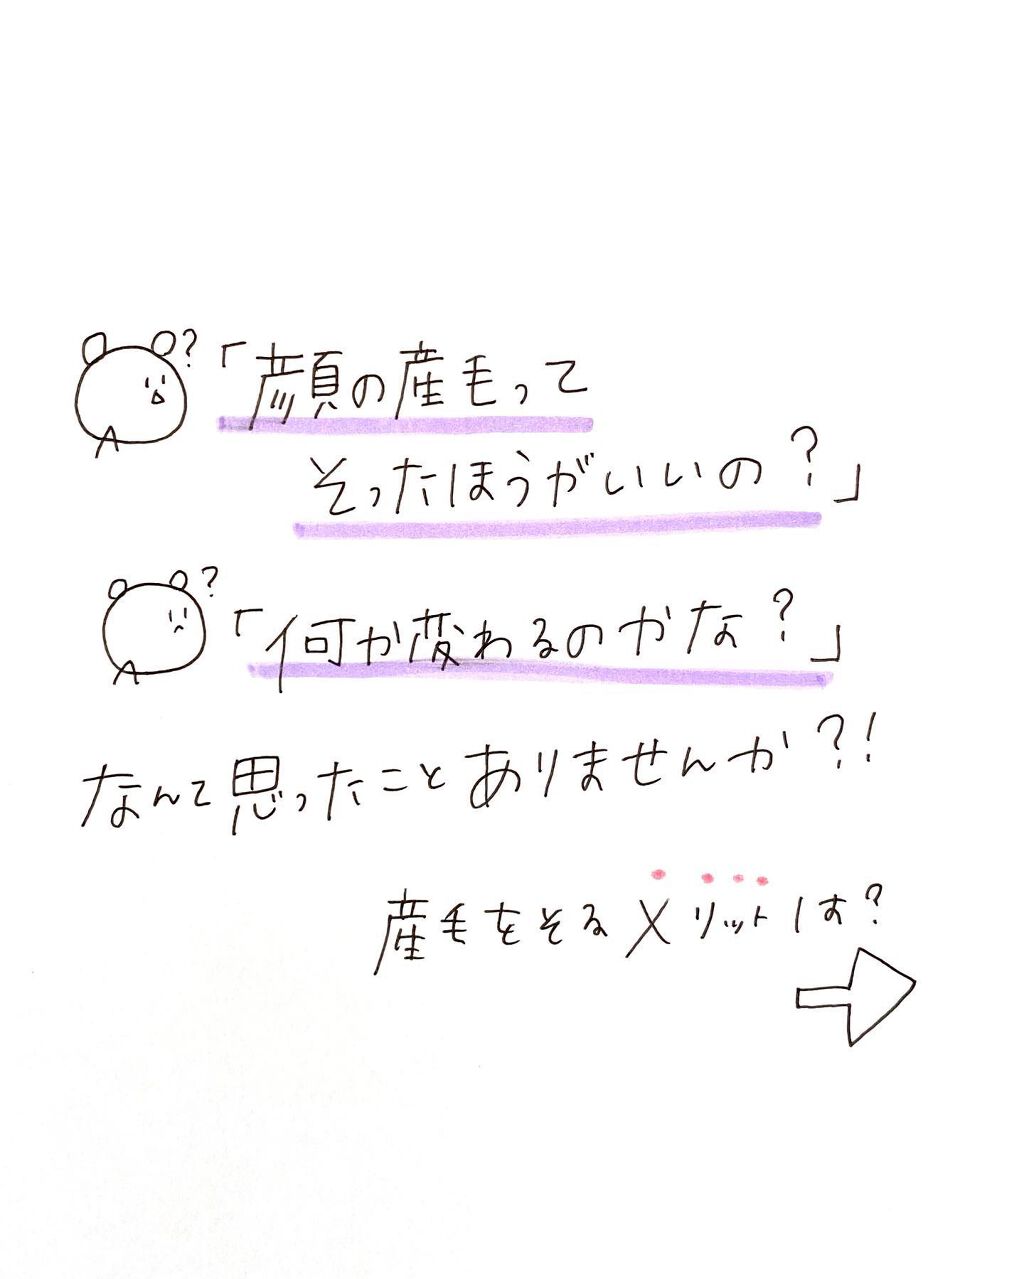 ?「顔の産毛って
そったほうがいいの?」
?「何か変わるのかな?」
なんて思ったことありませんか?!
産毛をそるメリットは?